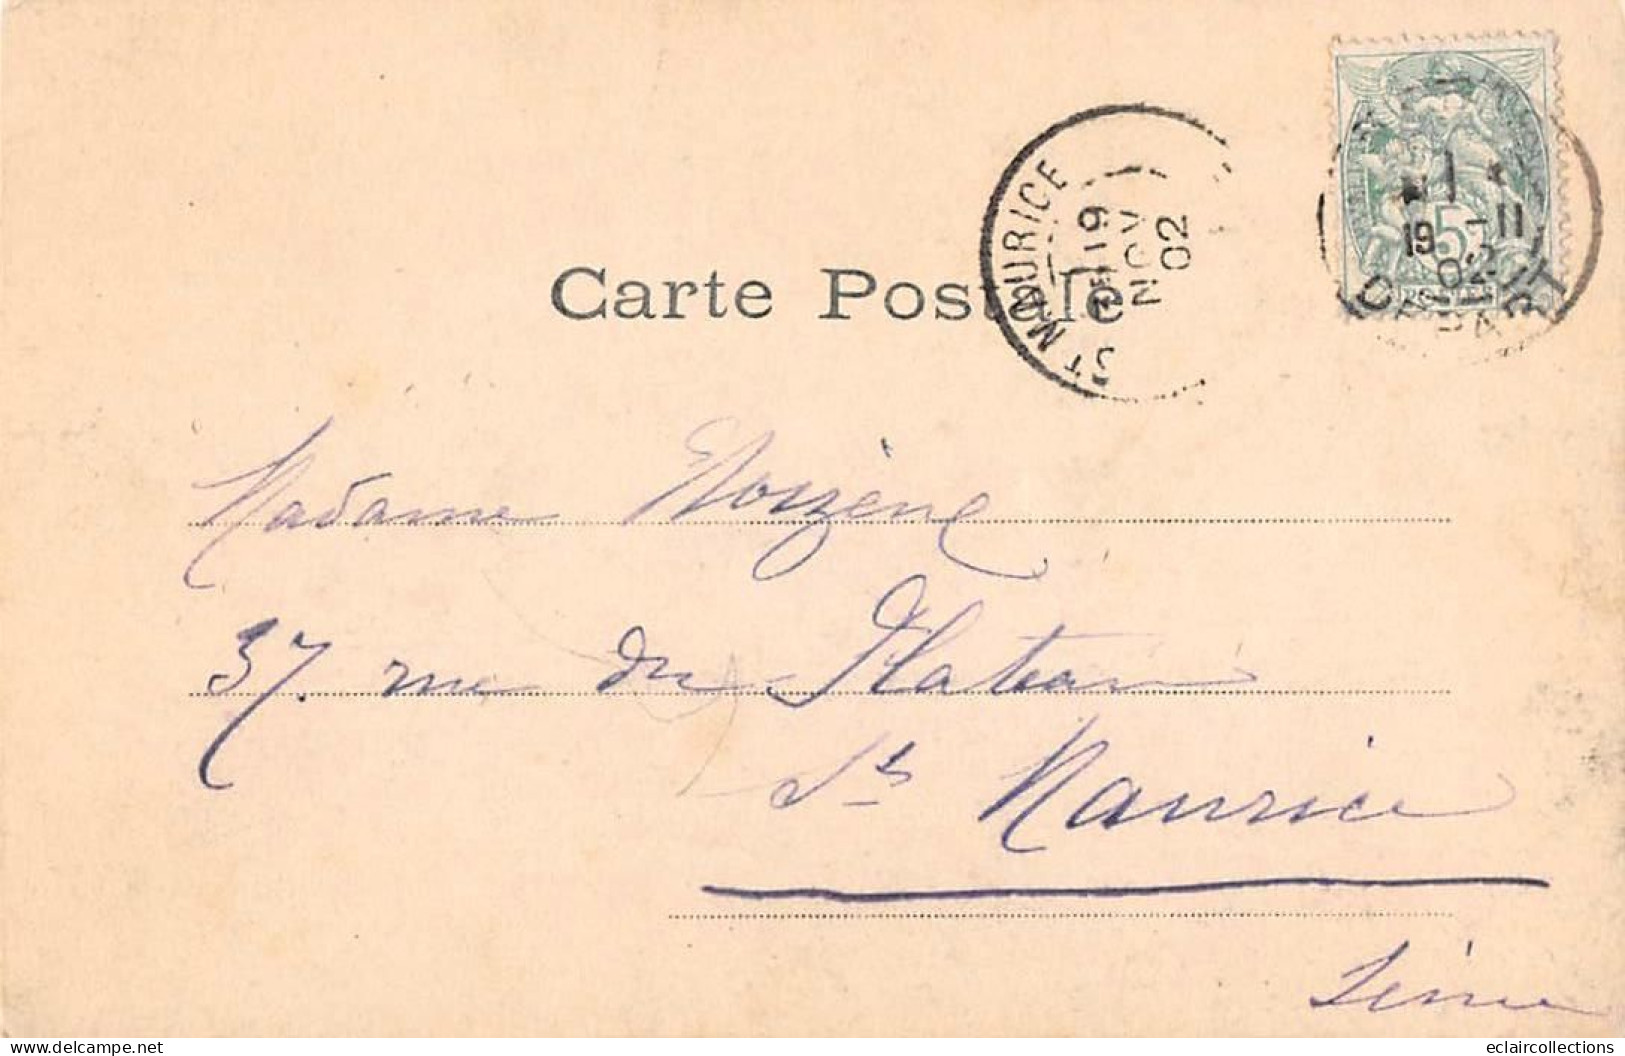 Carte Postale
ST MAURICE
19
NOV
02
19 11
02
5
POSTES
DEPART
Madame
37 rue du Plateau
St Maurice
Seine
www.delcampe.net
eclaircollections